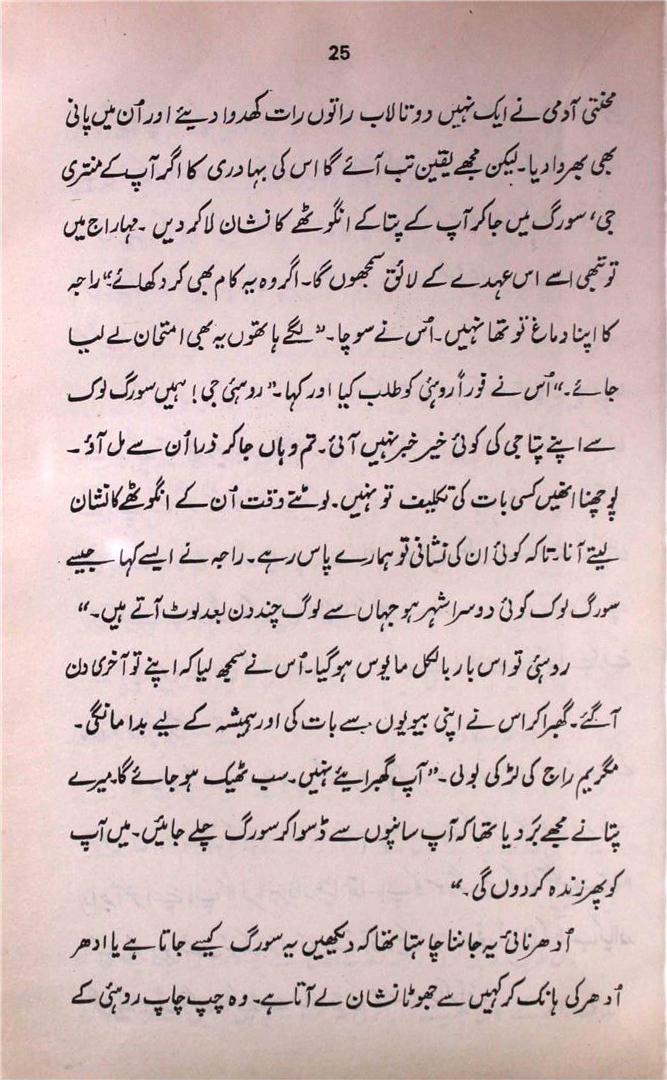 25
محنتی آدمی نے ایک نہیں دو تالاب راتوں رات کھدوا دیئے اور اُن میں پانی
بھی بھروا دیا۔ لیکن مجھے یقین تب آئے گا اس کی بہادری کا اگر آپ کے منتری
جی، سورگ میں جا کر آپ کے پتا کے انگوٹھے کا نشان لا کر دیں ۔ مہاراج میں
تو تبھی اسے اس عہدے کے لائق سمجھوں گا۔ اگر وہ یہ کام بھی کر دکھائے“ راجہ
کا اپنا دماغ تو تھا نہیں۔ اُس نے سوچا۔ ”لگے ہاتھوں یہ بھی امتحان لے لیا
جائے۔“ اُس نے فوراً روہنی کو طلب کیا اور کہا۔ ” روہنی جی! ہمیں سورگ لوک
سے اپنے پتا جی کی کوئی خیر خبر نہیں آئی۔ تم وہاں جا کر ذرا اُن سے مل آؤ ۔
پوچھنا انھیں کسی بات کی تکلیف تو نہیں۔ لوٹتے وقت اُن کے انگوٹھے کا نشان
لیتے آنا۔ تاکہ کوئی ان کی نشانی تو ہمارے پاس رہے۔ راجہ نے ایسے کہا جیسے
سورگ لوک کوئی دوسرا شہر ہو جہاں سے لوگ چند دن بعد لوٹ آتے ہیں۔“
روہنی تو اس بار بالکل مایوس ہو گیا۔ اُس نے سمجھ لیا کہ اپنے تو آخری دن
آ گئے۔ گھبرا کر اس نے اپنی بیویوں سے بات کی اور ہمیشہ کے لیے بدا مانگی ۔
مگر یم راج کی لڑکی بولی ۔ ” آپ گھبرایئے نہیں۔ سب ٹھیک ہو جائے گا۔ میرے
پتا نے مجھے بَر دیا تھا کہ آپ سانپوں سے ڈسوا کر سورگ چلے جائیں۔ میں آپ
کو پھر زندہ کر دوں گی ۔“
اُدھر نائی یہ جاننا چاہتا تھا کہ دیکھیں یہ سورگ کیسے جاتا ہے یا ادھر
اُدھر کی ہانک کر کہیں سے جھوٹا نشان لے آتا ہے۔ وہ چپ چاپ روہنی کے